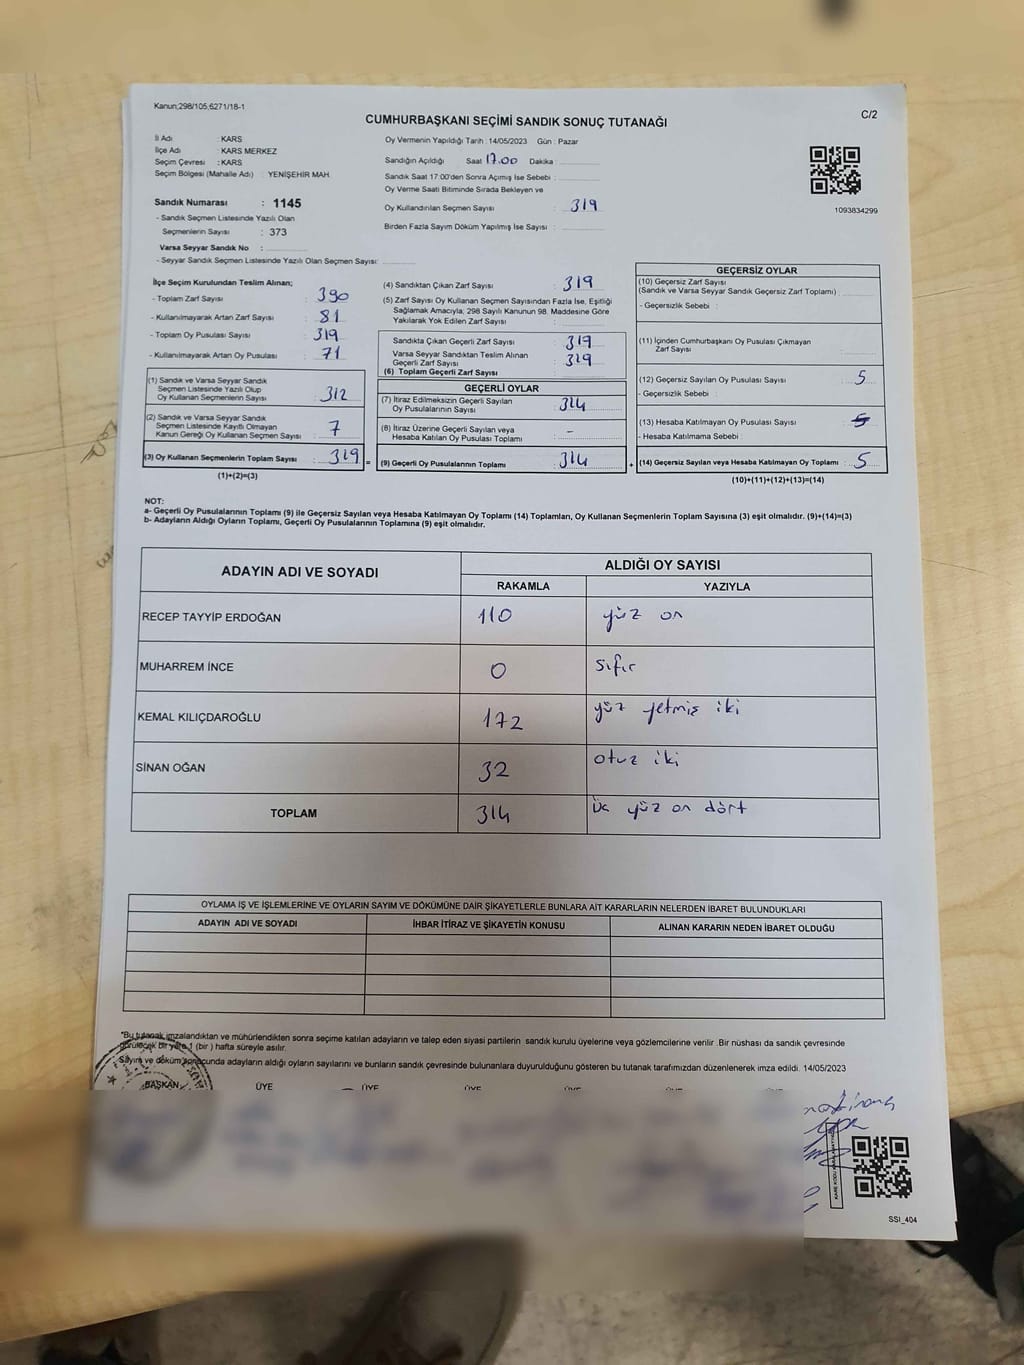 Kanun;298/105,6271/18-1
C/2
CUMHURBAŞKANI SEÇİMİ SANDIK SONUÇ TUTANAĞI
İl Adı : KARS
İlçe Adı : KARS MERKEZ
Seçim Çevresi : KARS
Seçim Bölgesi (Mahalle Adı) : YENİŞEHİR MAH.
Oy Vermenin Yapıldığı Tarih : 14/05/2023 Gün : Pazar
Sandığın Açıldığı Saat 17.00 Dakika :
Sandık Saat 17:00'den Sonra Açımış İse Sebebi :
Oy Verme Saati Bitiminde Sırada Bekleyen ve
Oy Kullandırılan Seçmen Sayısı : 319
Birden Fazla Sayım Döküm Yapılmış İse Sayısı :
1093834299
Sandık Numarası : 1145
- Sandık Seçmen Listesinde Yazılı Olan
Seçmenlerin Sayısı : 373
Varsa Seyyar Sandık No :
- Seyyar Sandık Seçmen Listesinde Yazılı Olan Seçmen Sayısı:
İlçe Seçim Kurulundan Teslim Alınan;
- Toplam Zarf Sayısı : 390
- Kullanılmayarak Artan Zarf Sayısı : 81
- Toplam Oy Pusulası Sayısı : 319
- Kullanılmayarak Artan Oy Pusulası : 71
(1) Sandık ve Varsa Seyyar Sandık
Seçmen Listesinde Yazılı Olup
Oy Kullanan Seçmenlerin Sayısı : 312
(2) Sandık ve Varsa Seyyar Sandık
Seçmen Listesinde Kayıtlı Olmayan
Kanun Gereği Oy Kullanan Seçmen Sayısı : 7
(3) Oy Kullanan Seçmenlerin Toplam Sayısı : 319 =
(1)+(2)=(3)
(4) Sandıktan Çıkan Zarf Sayısı : 319
(5) Zarf Sayısı Oy Kullanan Seçmen Sayısından Fazla İse, Eşitliği
Sağlamak Amacıyla; 298 Sayılı Kanunun 98. Maddesine Göre
Yakılarak Yok Edilen Zarf Sayısı :
Sandıkta Çıkan Geçerli Zarf Sayısı : 319
Varsa Seyyar Sandıktan Teslim Alınan
Geçerli Zarf Sayısı :
(6) Toplam Geçerli Zarf Sayısı : 319
GEÇERLİ OYLAR
(7) İtiraz Edilmeksizin Geçerli Sayılan
Oy Pusulalarının Sayısı : 314
(8) İtiraz Üzerine Geçerli Sayılan veya
Hesaba Katılan Oy Pusulası Toplamı : -
(9) Geçerli Oy Pusulalarının Toplamı : 314 +
GEÇERSİZ OYLAR
(10) Geçersiz Zarf Sayısı
(Sandık ve Varsa Seyyar Sandık Geçersiz Zarf Toplamı) :
- Geçersizlik Sebebi :
(11) İçinden Cumhurbaşkanı Oy Pusulası Çıkmayan
Zarf Sayısı :
(12) Geçersiz Sayılan Oy Pusulası Sayısı : 5
- Geçersizlik Sebebi :
(13) Hesaba Katılmayan Oy Pusulası Sayısı :
- Hesaba Katılmama Sebebi :
(14) Geçersiz Sayılan veya Hesaba Katılmayan Oy Toplamı : 5
(10)+(11)+(12)+(13)=(14)
NOT:
a- Geçerli Oy Pusulalarının Toplamı (9) ile Geçersiz Sayılan veya Hesaba Katılmayan Oy Toplamı (14) Toplamları, Oy Kullanan Seçmenlerin Toplam Sayısına (3) eşit olmalıdır. (9)+(14)=(3)
b- Adayların Aldığı Oyların Toplamı, Geçerli Oy Pusulalarının Toplamına (9) eşit olmalıdır.
ADAYIN ADI VE SOYADI
ALDIĞI OY SAYISI
RAKAMLA YAZIYLA
RECEP TAYYİP ERDOĞAN 110 yüz on
MUHARREM İNCE 0 sıfır
KEMAL KILIÇDAROĞLU 172 yüz yetmiş iki
SİNAN OĞAN 32 otuz iki
TOPLAM 314 üç yüz on dört
OYLAMA İŞ VE İŞLEMLERİNE VE OYLARIN SAYIM VE DÖKÜMÜNE DAİR ŞİKAYETLERLE BUNLARA AİT KARARLARIN NELERDEN İBARET BULUNDUKLARI
ADAYIN ADI VE SOYADI İHBAR İTİRAZ VE ŞİKAYETİN KONUSU ALINAN KARARIN NEDEN İBARET OLDUĞU
"Bu tutanak imzalandıktan ve mühürlendikten sonra seçime katılan adayların ve talep eden siyasi partilerin sandık kurulu üyelerine veya gözlemcilerine verilir .Bir nüshası da sandık çevresinde
görülecek bir yere 1 (bir ) hafta süreyle asılır.
Sayım ve döküm sonucunda adayların aldığı oyların sayılarını ve bunların sandık çevresinde bulunanlara duyurulduğunu gösteren bu tutanak tarafımızdan düzenlenerek imza edildi. 14/05/2023
BAŞKAN ÜYE ÜYE ÜYE ÜYE ÜYE ÜYE
SSI_404